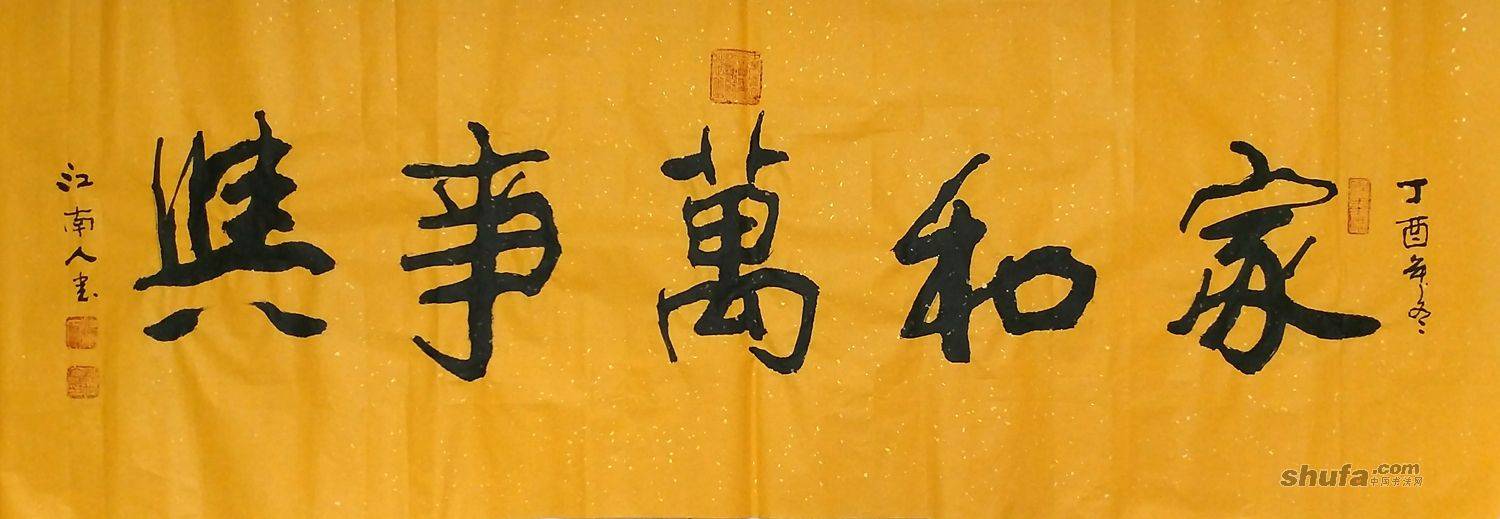 丁酉年冬
家和萬事興
江南人书
shufa.com
中国书法网